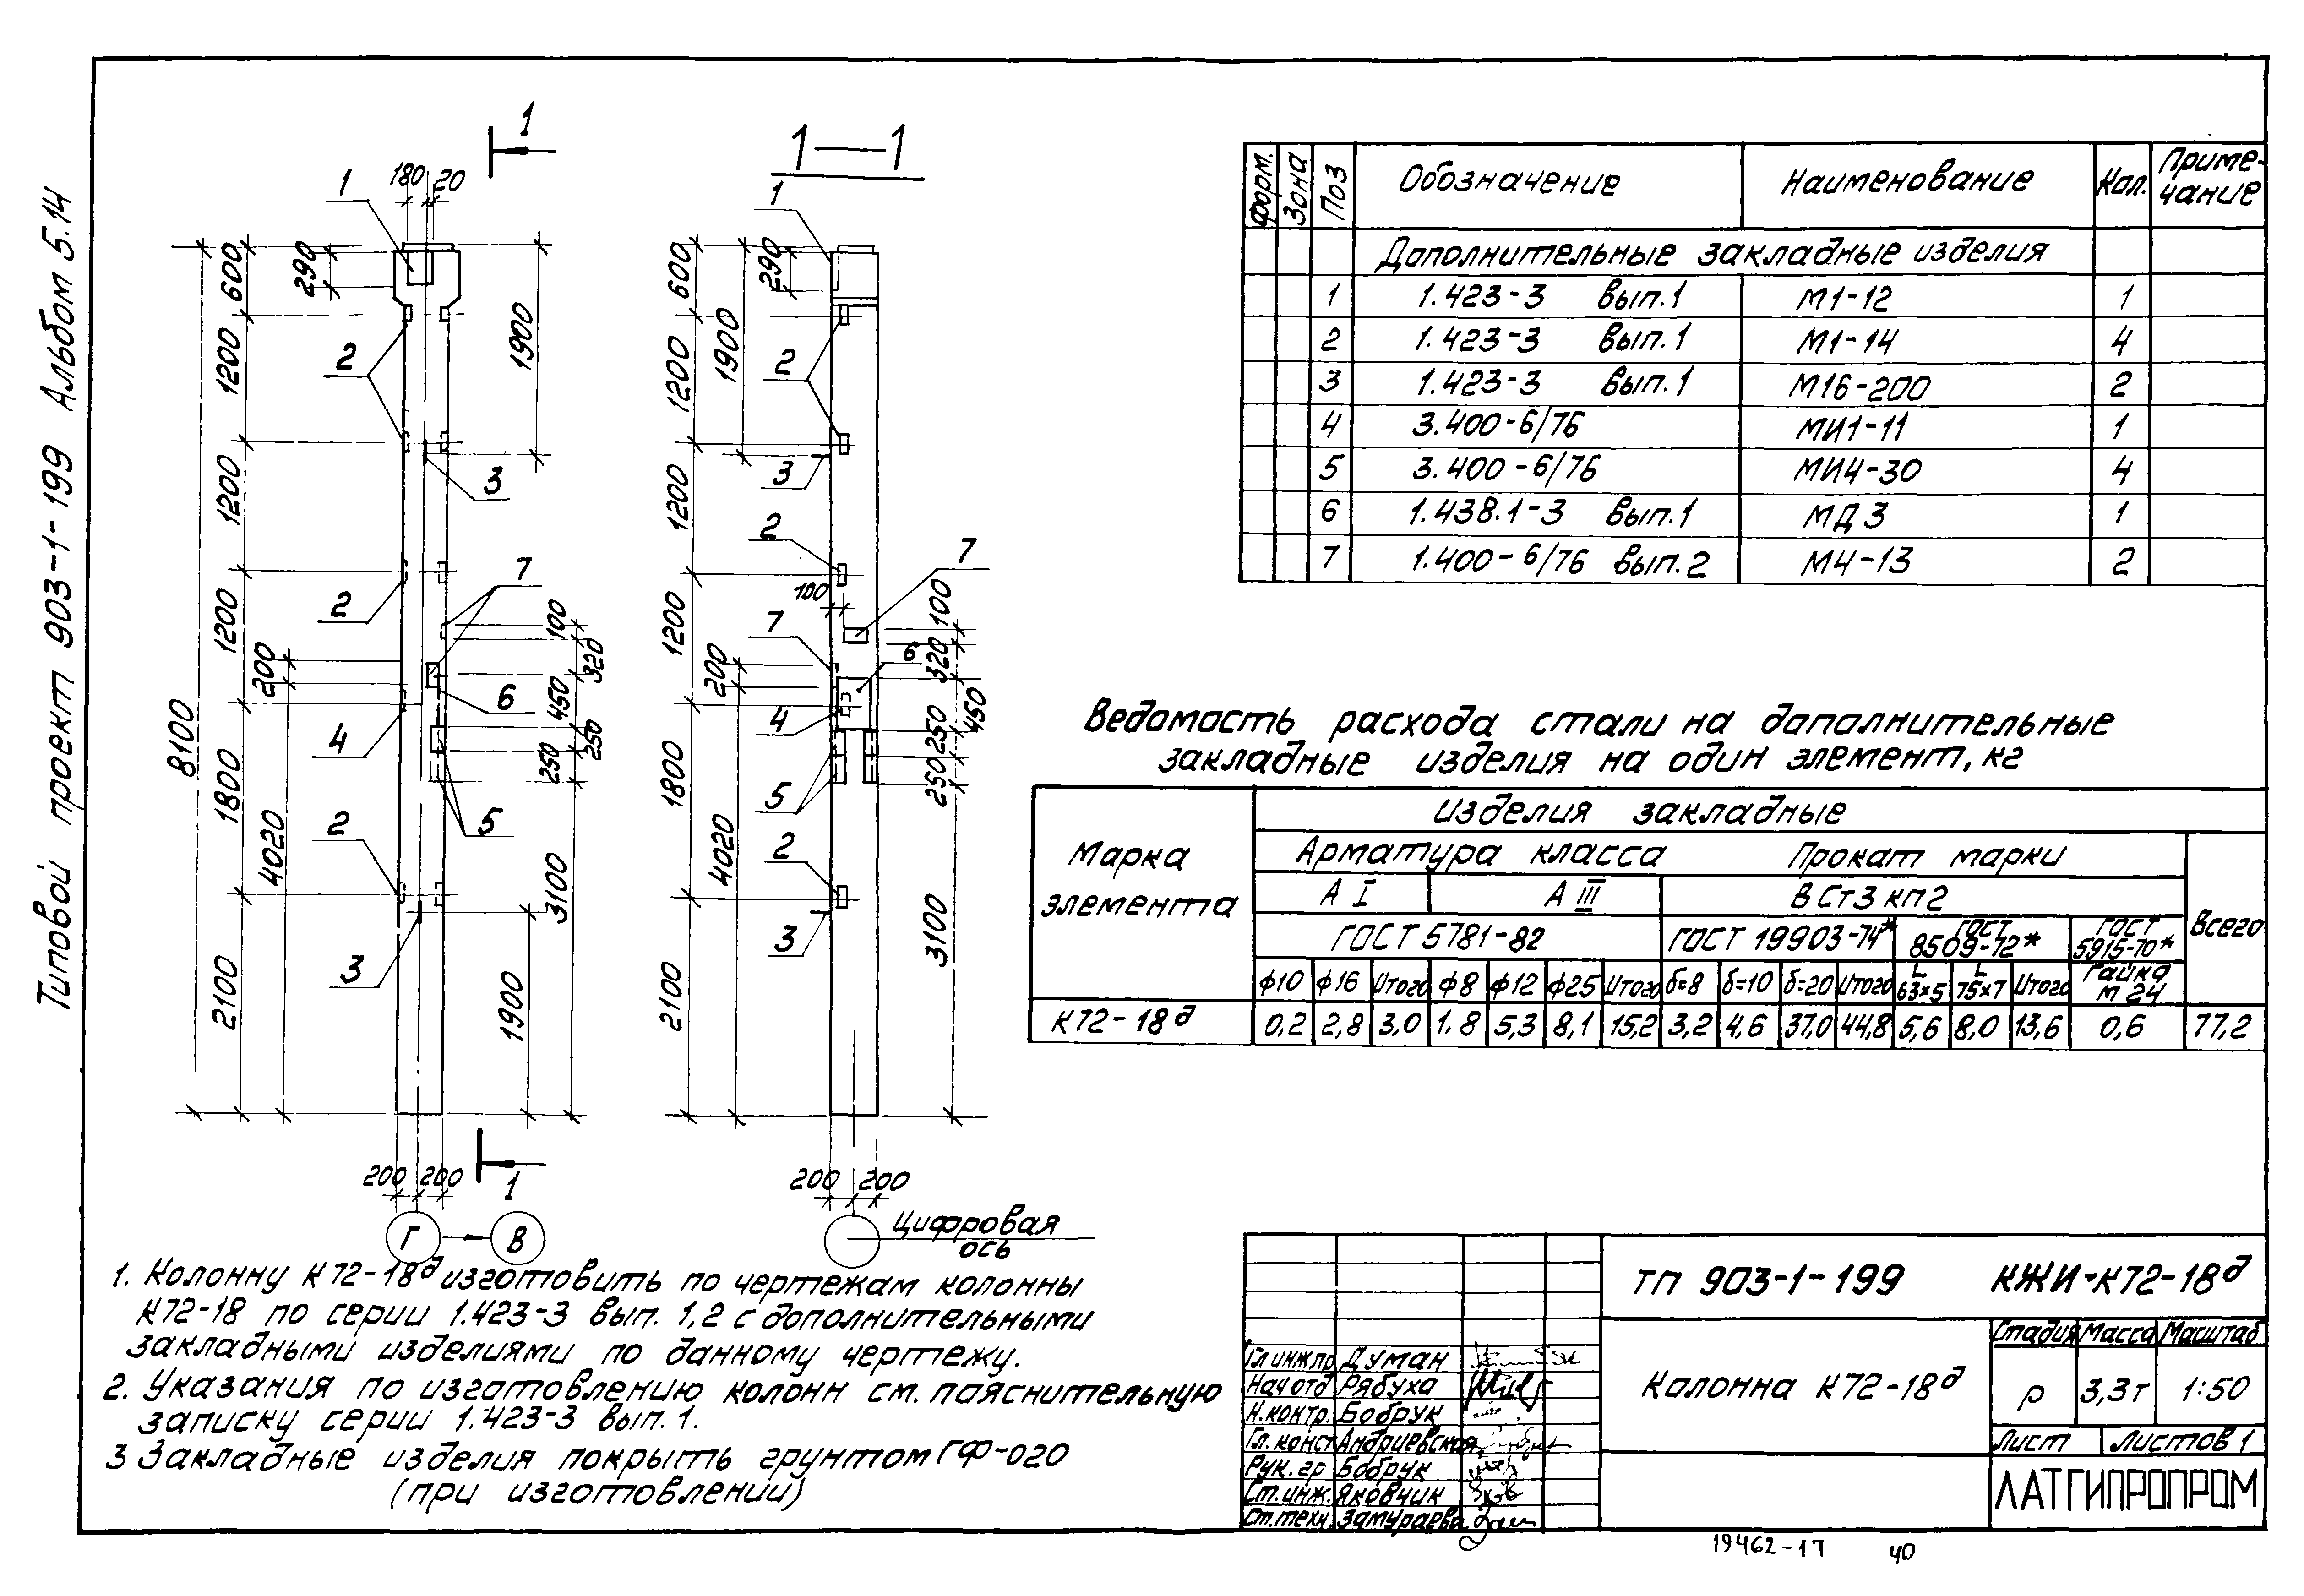 Типовой проект 903-1-199 Альбом 5.14
1
180 20
1
290
600
1200
1200
1200
1800
2100
8100
200
4020
1900
2
3
2
7
6
4
5
2
3
100
320
450
250
250
3100
1900
200 200
1
Г В
1—1
1
290
600
1900
1200
1200
1200
1800
2100
200
4020
2
3
2
7
100
100
7
6
320
450
4
250
250
5
2
3
3100
200 200
Цифровая
ось
Форм. Зона Поз Обозначение Наименование Кол. Приме-
чание
Дополнительные закладные изделия
1 1.423-3 вып.1 М1-12 1
2 1.423-3 вып.1 М1-14 4
3 1.423-3 вып.1 М16-200 2
4 3.400-6/76 МИ1-11 1
5 3.400-6/76 МИ4-30 4
6 1.438.1-3 вып.1 МД3 1
7 1.400-6/76 вып.2 М4-13 2
Ведомость расхода стали на дополнительные
закладные изделия на один элемент, кг
Марка
элемента
Изделия закладные
Арматура класса Прокат марки
Всего
А I А III ВСт3кп2
ГОСТ 5781-82 ГОСТ 19903-74* ГОСТ
8509-72* ГОСТ
5915-70*
ф10 ф16 Итого ф8 ф12 ф25 Итого δ=8 δ=10 δ=20 Итого L
63×5 L
75×7 Итого Гайка
М 24
К72-18д 0,2 2,8 3,0 1,8 5,3 8,1 15,2 3,2 4,6 37,0 44,8 5,6 8,0 13,6 0,6 77,2
1. Колонну К72-18д изготовить по чертежам колонны
К72-18 по серии 1.423-3 вып. 1,2 с дополнительными
закладными изделиями по данному чертежу.
2. Указания по изготовлению колонн см. пояснительную
записку серии 1.423-3 вып. 1.
3 Закладные изделия покрыть грунтом ГФ-020
(при изготовлении)
ТП 903-1-199 КЖИ-К72-18д
Гл инж пр Думан
Нач отд Рябуха
Н.контр. Бобрук
Гл. конст Андриевская
Рук. гр Бобрук
Ст.инж. Яковчик
Ст.техн. Замураева
Колонна К72-18д
Стадия Масса Масштаб
Р 3,3т 1:50
Лист Листов 1
ЛАТГИПРОПРОМ
19462-17 40